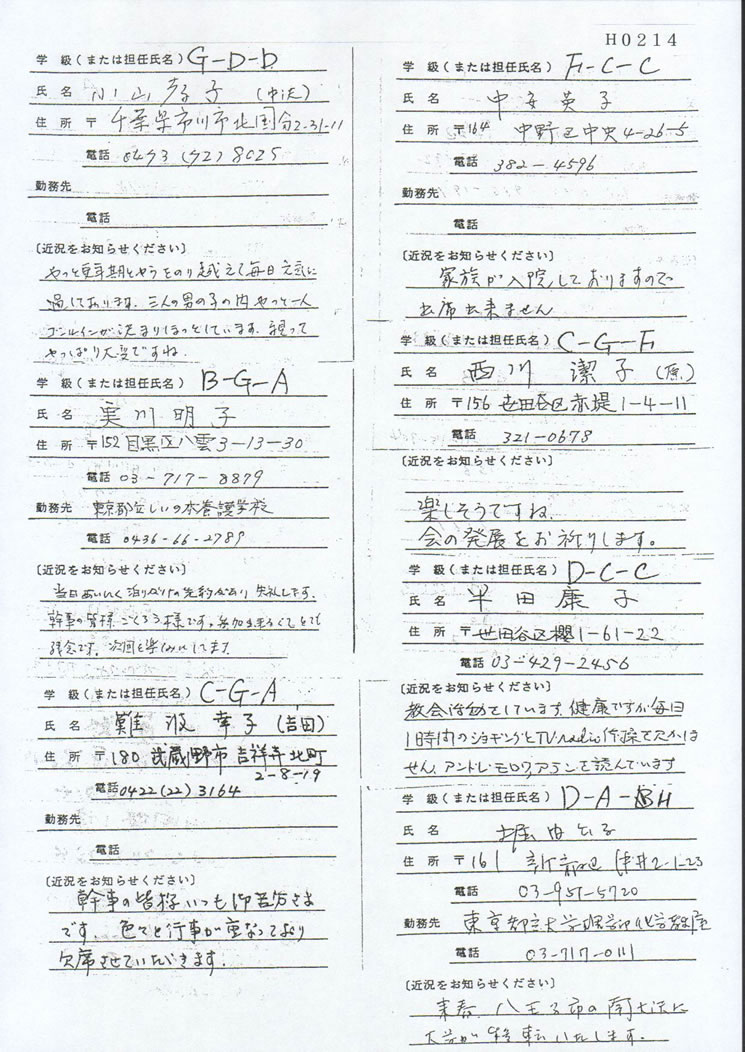 H0214
学 級（または担任氏名）G-D-D
氏 名 小山 孝子 （中沢）
住 所 〒 千葉県市川市北国分2-31-11
電話 0473(72)8025
勤務先
電話
〔近況をお知らせください〕
やっと更年期とやらをのり越えて毎日元気に
過しております。三人の男の子の内やっと一人
ゴールインが決まりほっとしています。
やっぱり大変ですね。
学 級（または担任氏名）B-G-A
氏 名 実川明子
住 所 〒152 目黒区八雲3-13-30
電話 03-717-8879
勤務先 東京都立しいの木養護学校
電話 0436-66-2789
〔近況をお知らせください〕
当日あいにく泊りがけの先約があり失礼します。
幹事の皆様ごくろう様です。参加出来なくとても
残念です。次回を楽しみにしてます
学 級（または担任氏名）C-G-A
氏 名 難波 幸子（吉田）
住 所 〒180 武蔵野市吉祥寺北町
2-8-19
電話 0422(22)3164
勤務先
電話
〔近況をお知らせください〕
幹事の皆様いつも御苦労さま
です。色々と行事が重なっており
欠席させていただきます。
学 級（または担任氏名）F-C-C
氏 名 中安英子
住 所 〒164 中野区中央4-26-5
電話 382-4596
勤務先
電話
〔近況をお知らせください〕
家族が入院しておりますので
出席出来ません
学 級（または担任氏名）C-G-F
氏 名 西川 潔子（原）
住 所 〒156 世田谷区赤堤1-4-11
電話 321-0678
〔近況をお知らせください〕
楽しそうですね。
会の発展をお祈りします。
学 級（または担任氏名）D-C-C
氏 名 半田康子
住 所 〒世田谷区櫻1-61-22
電話 03-429-2456
〔近況をお知らせください〕
教会活動をしています。健康ですが毎日
1時間のジョギングとTV.radio体操を欠かしま
せん。アンドレ・モロワ,アランを読んでいます
学 級（または担任氏名）D-A-H
氏 名 堀
住 所 〒161 新宿区 2-1-23
電話 03-951-5720
勤務先 東京都立大学理学部化学教室
電話 03-717-0111
〔近況をお知らせください〕
来春、八王子市の南大沢に
大学が移転いたします。